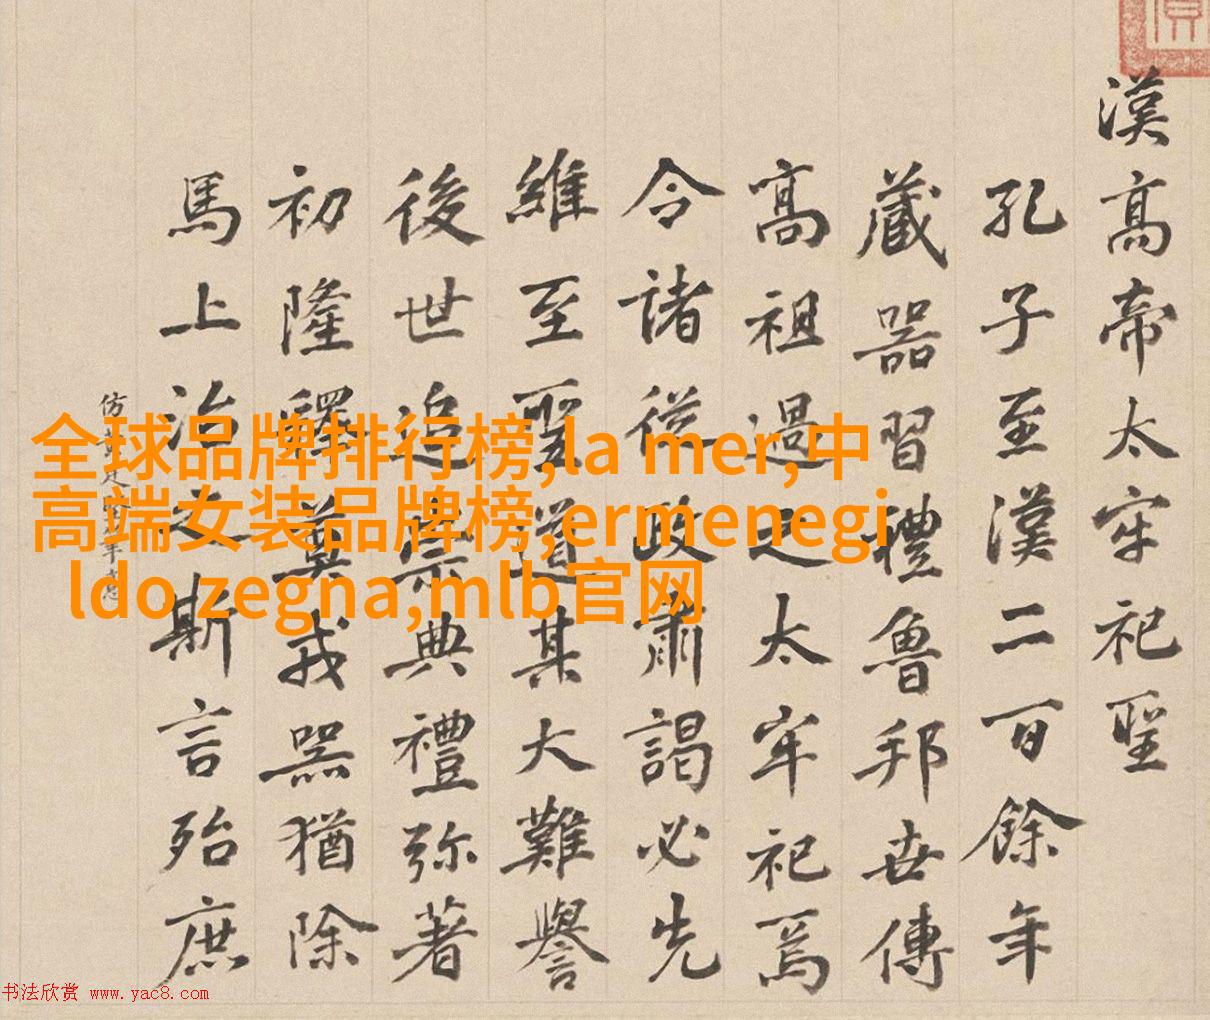 漢高帝太牢祀聖
孔子至漢二百餘年
藏器習禮魯邦世傳
高祖過之太牢祀焉
令諸從政肅謁必先
維至聖道某大難譽
後世追崇典禮弥著
初隆釋奠戎器猶除
馬上治之斯言殆庶
仿
全球品牌排行榜,la mer,中
高端女装品牌榜,ermenegi
ldo zegna,mlb官网
书法欣赏 www.yac8.com